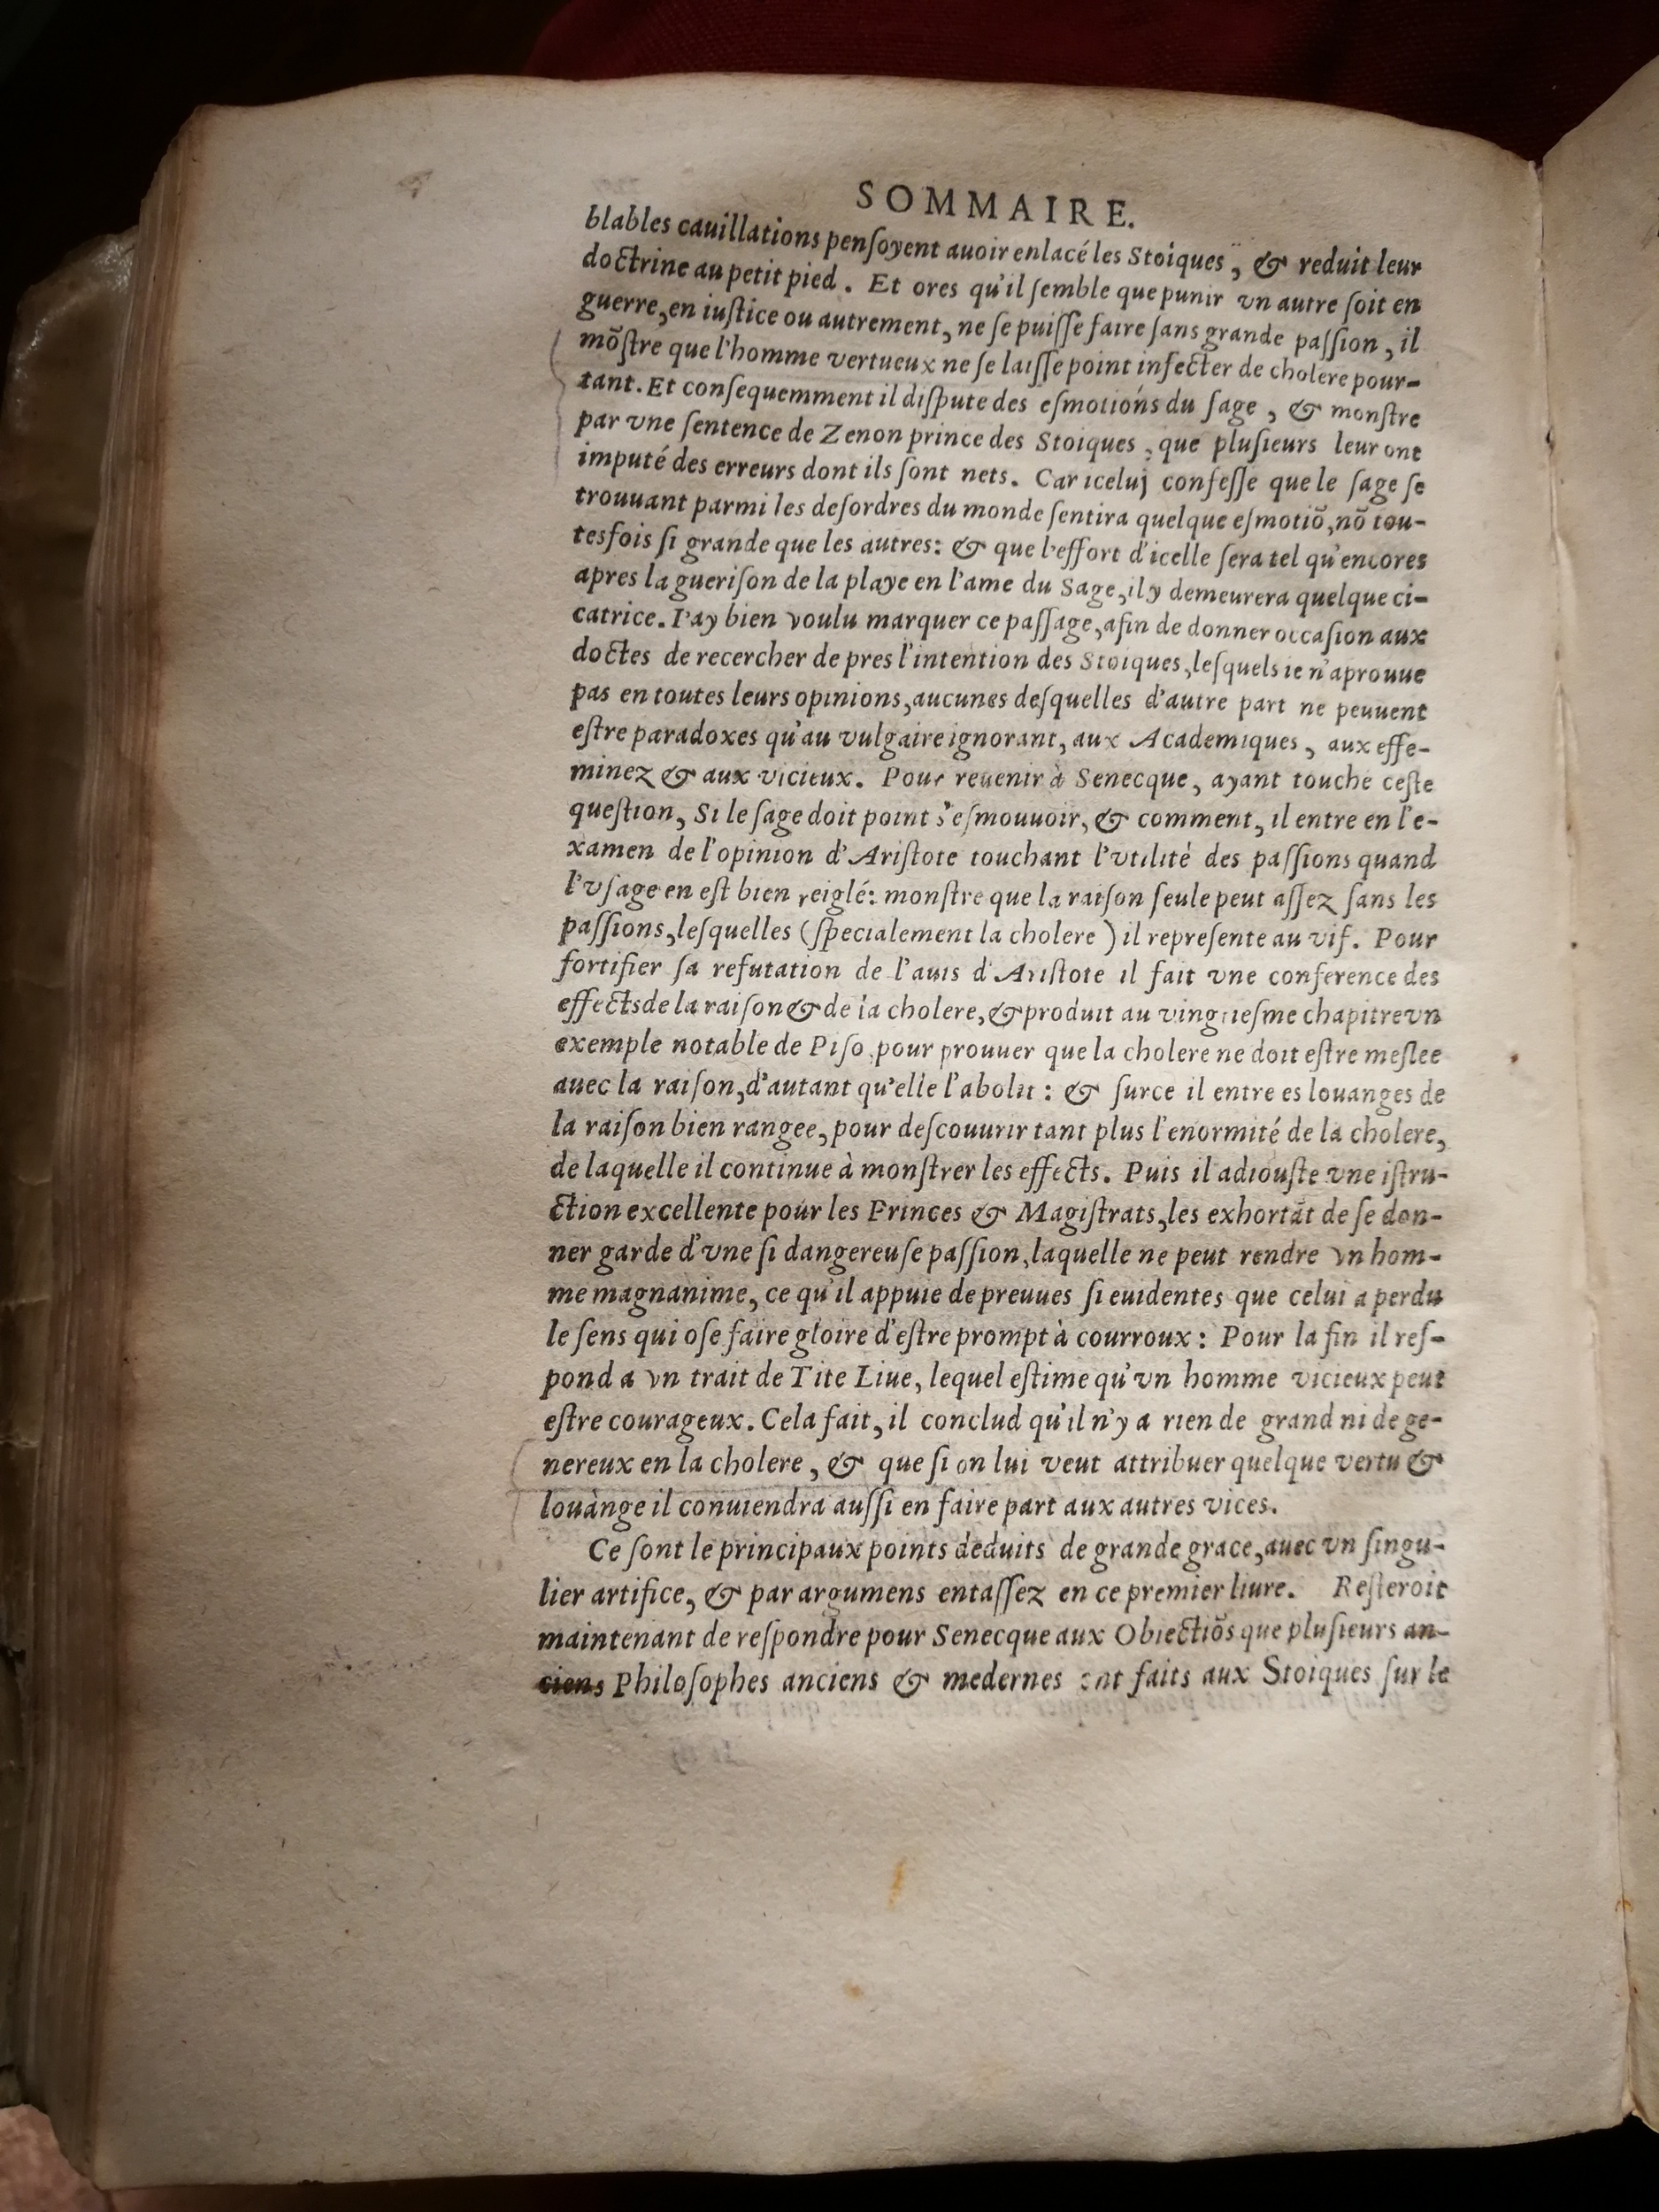 SOMMAIRE.
blables cauillations penſoyent auoir enlacé les Stoiques, & reduit leur
doctrine au petit pied. Et ores qu'il ſemble que punir vn autre ſoit en
guerre, en iuſtice ou autrement, ne ſe puiſſe faire ſans grande paſſion, il
mõſtre que l'homme vertueux ne ſe laiſſe point infecter de cholere pour-
tant. Et conſequemment il diſpute des eſmotions du ſage, & monſtre
par vne ſentence de Zenon prince des Stoiques, que pluſieurs leur ont
imputé des erreurs dont ils ſont nets. Car iceluj confeſſe que le ſage ſe
trouuant parmi les deſordres du monde ſentira quelque eſmotiõ, nõ tou-
tesfois ſi grande que les autres: & que l'effort d'icelle ſera tel qu'encores
apres la gueriſon de la playe en l'ame du Sage, il y demeurera quelque ci-
catrice. I'ay bien voulu marquer ce paſſage, afin de donner occaſion aux
doctes de recercher de pres l'intention des Stoiques, leſquels ie n'aprouue
pas en toutes leurs opinions, aucunes deſquelles d'autre part ne peuuent
eſtre paradoxes qu'au vulgaire ignorant, aux Academiques, aux effe-
minez & aux vicieux. Pour reuenir à Senecque, ayant touché ceſte
queſtion, Si le ſage doit point s'eſmouuoir, & comment, il entre en l'e-
xamen de l'opinion d'Ariſtote touchant l'vtilité des paſſions quand
l'vſage en eſt bien reiglé: monſtre que la raiſon ſeule peut aſſez ſans les
paſſions, leſquelles (ſpecialement la cholere) il repreſente au vif. Pour
fortifier ſa refutation de l'auis d'Ariſtote il fait vne conference des
effects de la raiſon & de la cholere, & produit au vingtieſme chapitre vn
exemple notable de Piſo, pour prouuer que la cholere ne doit eſtre meſlee
auec la raiſon, d'autant qu'elle l'abolit: & ſur ce il entre es louanges de
la raiſon bien rangee, pour deſcouurir tant plus l'enormité de la cholere,
de laquelle il continue à monſtrer les effects. Puis il adiouſte vne iſtru-
ction excellente pour les Princes & Magiſtrats, les exhortãt de ſe don-
ner garde d'vne ſi dangereuſe paſſion, laquelle ne peut rendre vn hom-
me magnanime, ce qu'il appuie de preuues ſi euidentes que celui a perdu
le ſens qui oſe faire gloire d'eſtre prompt à courroux: Pour la fin il reſ-
pond a vn trait de Tite Liue, lequel eſtime qu'vn homme vicieux peut
eſtre courageux. Cela fait, il conclud qu'il n'y a rien de grand ni de ge-
nereux en la cholere, & que ſi on lui veut attribuer quelque vertu &
louange il conuiendra auſſi en faire part aux autres vices.
Ce ſont le principaux points deduits de grande grace, auec vn ſingu-
lier artifice, & par argumens entaſſez en ce premier liure. Reſteroit
maintenant de reſpondre pour Senecque aux Obiectiõs que pluſieurs an-
ciens Philoſophes anciens & medernes ont faits aux Stoiques ſur le